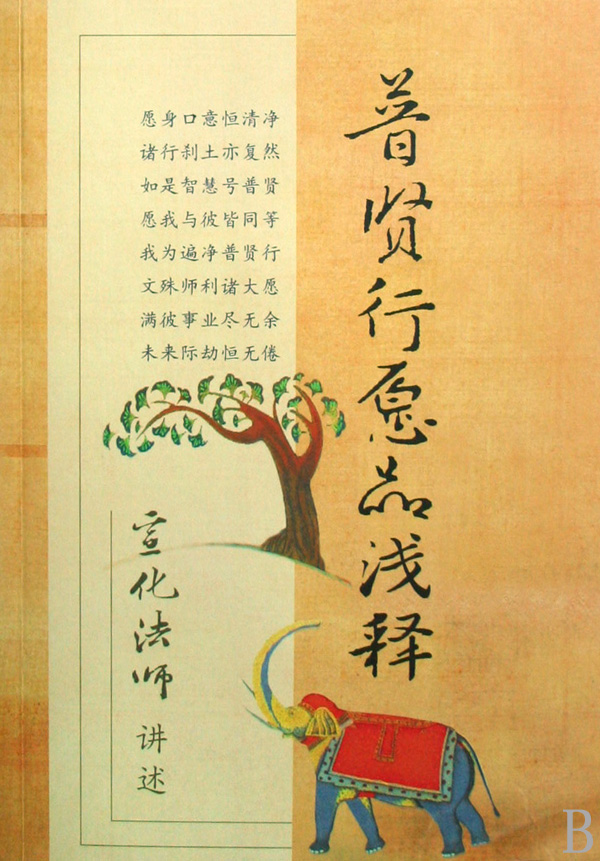 普贤行愿品浅释
愿身口意恒清净
诸行刹土亦复然
如是智慧号普贤
愿我与彼皆同等
我为遍净普贤行
文殊师利诸大愿
满彼事业尽无余
未来际劫恒无倦
宣化法师 讲述
B